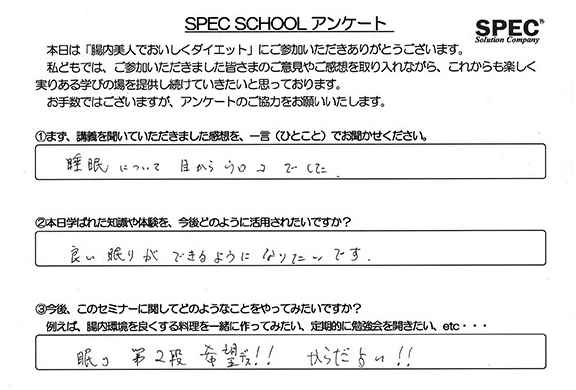 SPEC SCHOOL アンケート
SPEC®
Solution Company
本日は「腸内美人でおいしくダイエット」にご参加いただきありがとうございます。
私どもでは、ご参加いただきました皆さまのご意見やご感想を取り入れながら、これからも楽しく
実りある学びの場を提供し続けていきたいと思っております。
お手数ではございますが、アンケートのご協力をお願いいたします。
①まず、講義を聞いていただきました感想を、一言（ひとこと）でお聞かせください。
睡眠について 目からウロコでした.
②本日学ばれた知識や体験を、今後どのように活用されたいですか？
良い眠りができるようになりたいです.
③今後、このセミナーに関してどのようなことをやってみたいですか？
例えば、腸内環境を良くする料理を一緒に作ってみたい、定期的に勉強会を開きたい、etc・・・
第2段 希望です!!